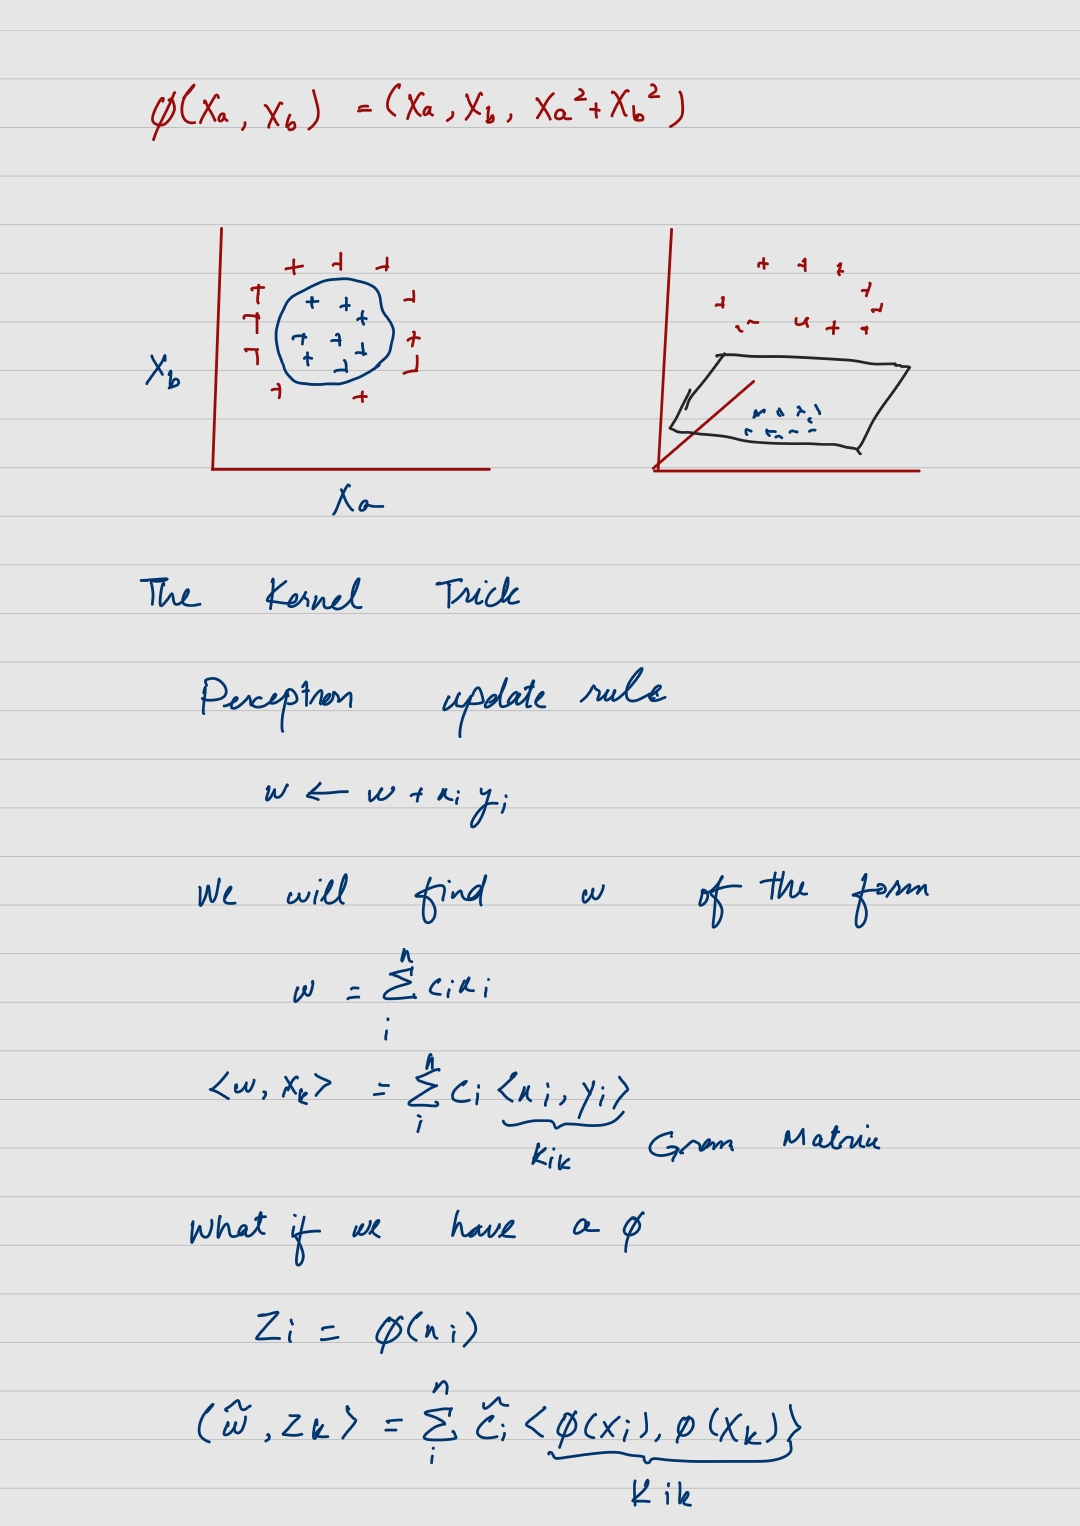 φ(Xa, Xb) = (Xa, Xb, Xa² + Xb²)
Xb
Xa
The Kernel Trick
Perceptron update rule
w ← w + xi yi
We will find w of the form
w = Σᵢⁿ ci xi
<w, xk> = Σᵢⁿ ci <xi, yi>
Kik Gram Matrix
What if we have a φ
Zi = φ(xi)
(w̃, zk> = Σᵢⁿ c̃i <φ(xi), φ(xk)>
Kik